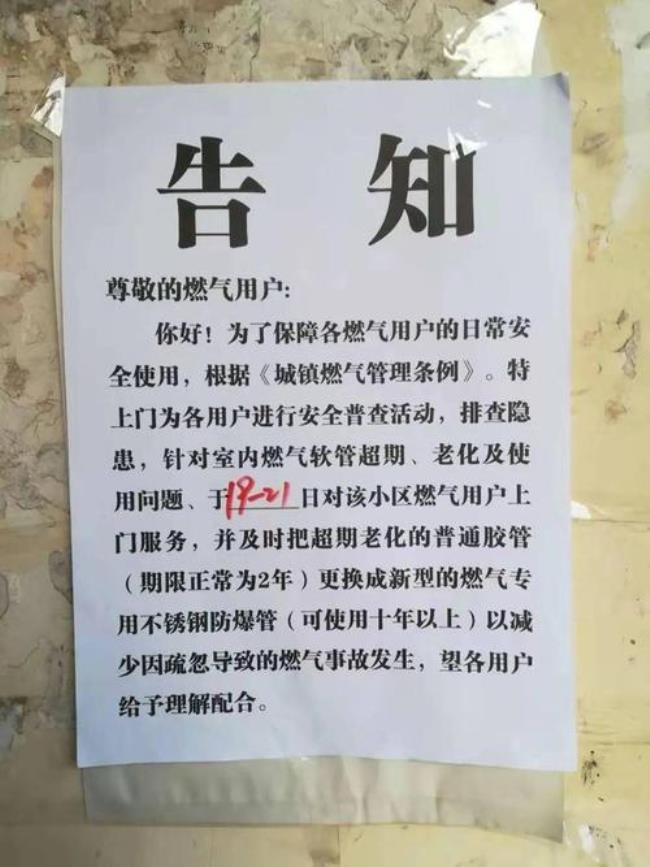 告 知
尊敬的燃气用户:
你好！为了保障各燃气用户的日常安
全使用，根据《城镇燃气管理条例》。特
上门为各用户进行安全普查活动，排查隐
患，针对室内燃气软管超期、老化及使
用问题、于19-21日对该小区燃气用户上
门服务，并及时把超期老化的普通胶管
（期限正常为2年）更换成新型的燃气专
用不锈钢防爆管（可使用十年以上）以减
少因疏忽导致的燃气事故发生，望各用户
给予理解配合。